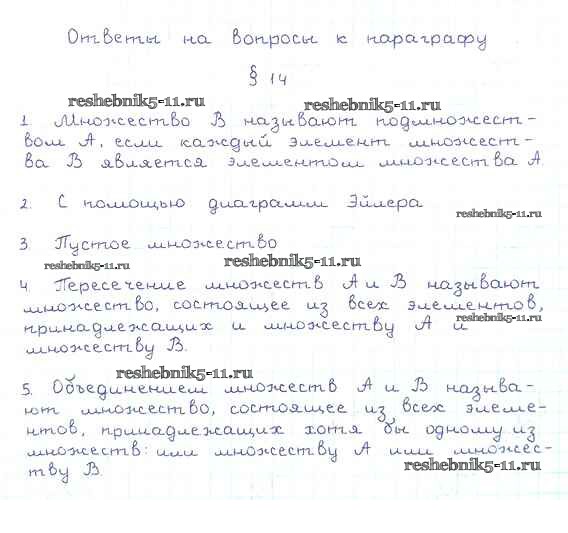 Ответы на вопросы к параграфу
§ 14
reshebnik5-11.ru reshebnik5-11.ru
1. Множество В называют подмножест-
вом А, если каждый элемент множест-
ва В является элементом множества А.
2. С помощью диаграмм Эйлера
reshebnik5-11.ru
3. Пустое множество
reshebnik5-11.ru reshebnik5-11.ru
4. Пересечение множеств А и В называют
множество, состоящее из всех элементов,
принадлежащих и множеству А и
reshebnik5-11.ru
множеству В.
reshebnik5-11.ru
5. Объединением множеств А и В называ-
ют множество, состоящее из всех элеме-
нтов, принадлежащих хотя бы одному из
множеств: или множеству А или множес-
тву В.
reshebnik5-11.ru